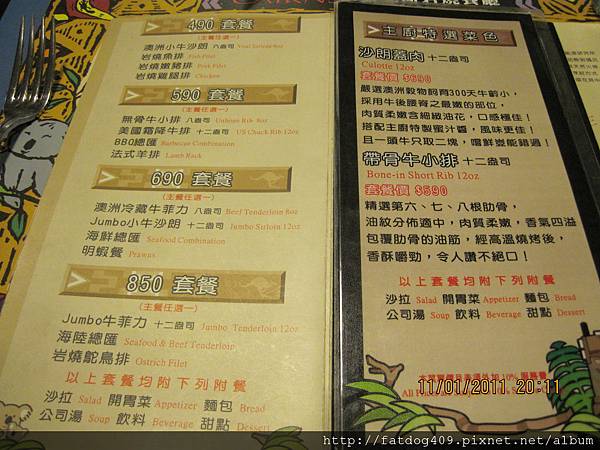 490 套餐
(主餐任選一)
澳洲小牛沙朗 六盎司 Veal Sirloin 6oz
岩燒魚排 Fish Filet
岩燒嫩豬排 Pork Filet
岩燒雞腿排 Chicken
590 套餐
(主餐任選一)
無骨牛小排 八盎司 Unbone Rib 8oz
美國霜降牛排 十二盎司 US Chuck Rib 12oz
BBQ總匯 Barbecue Combination
法式羊排 Lamb Rack
690 套餐
(主餐任選一)
澳洲冷藏牛菲力 八盎司 Beef Tenderloin 8oz
Jumbo小牛沙朗 十二盎司 Jumbo Sirloin 12oz
海鮮總匯 Seafood Combination
明蝦餐 Prawns
850 套餐
(主餐任選一)
Jumbo牛菲力 十二盎司 Jumbo Tenderloin 12oz
海陸總匯 Seafood & Beef Tenderloin
岩燒鴕鳥排 Ostrich Filet
以上套餐均附下列附餐
沙拉 Salad 開胃菜 Appetizer 麵包 Bread
公司湯 Soup 飲料 Beverage 甜點 Dessert
主廚特選菜色
沙朗蓋肉 十二盎司
Culotte 12oz
套餐價 $690
嚴選澳洲穀物飼育300天牛齡小,
採用牛後腰脊之最嫩的部位,
肉質柔嫩含細緻油花,口感極佳!
搭配主廚特製蜜汁醬,風味更佳!
且一頭牛只取二塊,嚐鮮豈能錯過!
帶骨牛小排 十二盎司
Bone-in Short Rib 12oz
套餐價 $590
精選第六、七、八根肋骨,
油紋分佈適中,肉質柔嫩,香氣四溢
包覆肋骨的油筋,經高溫燒烤後,
香酥嚼勁,令人讚不絕口!
以上套餐均附下列附餐
沙拉 Salad 開胃菜 Appetizer 麵包 Bread
公司湯 Soup 飲料 Beverage 甜點 Dessert
11/01/2011 20:11
http://fatdog409.pixnet.net/album